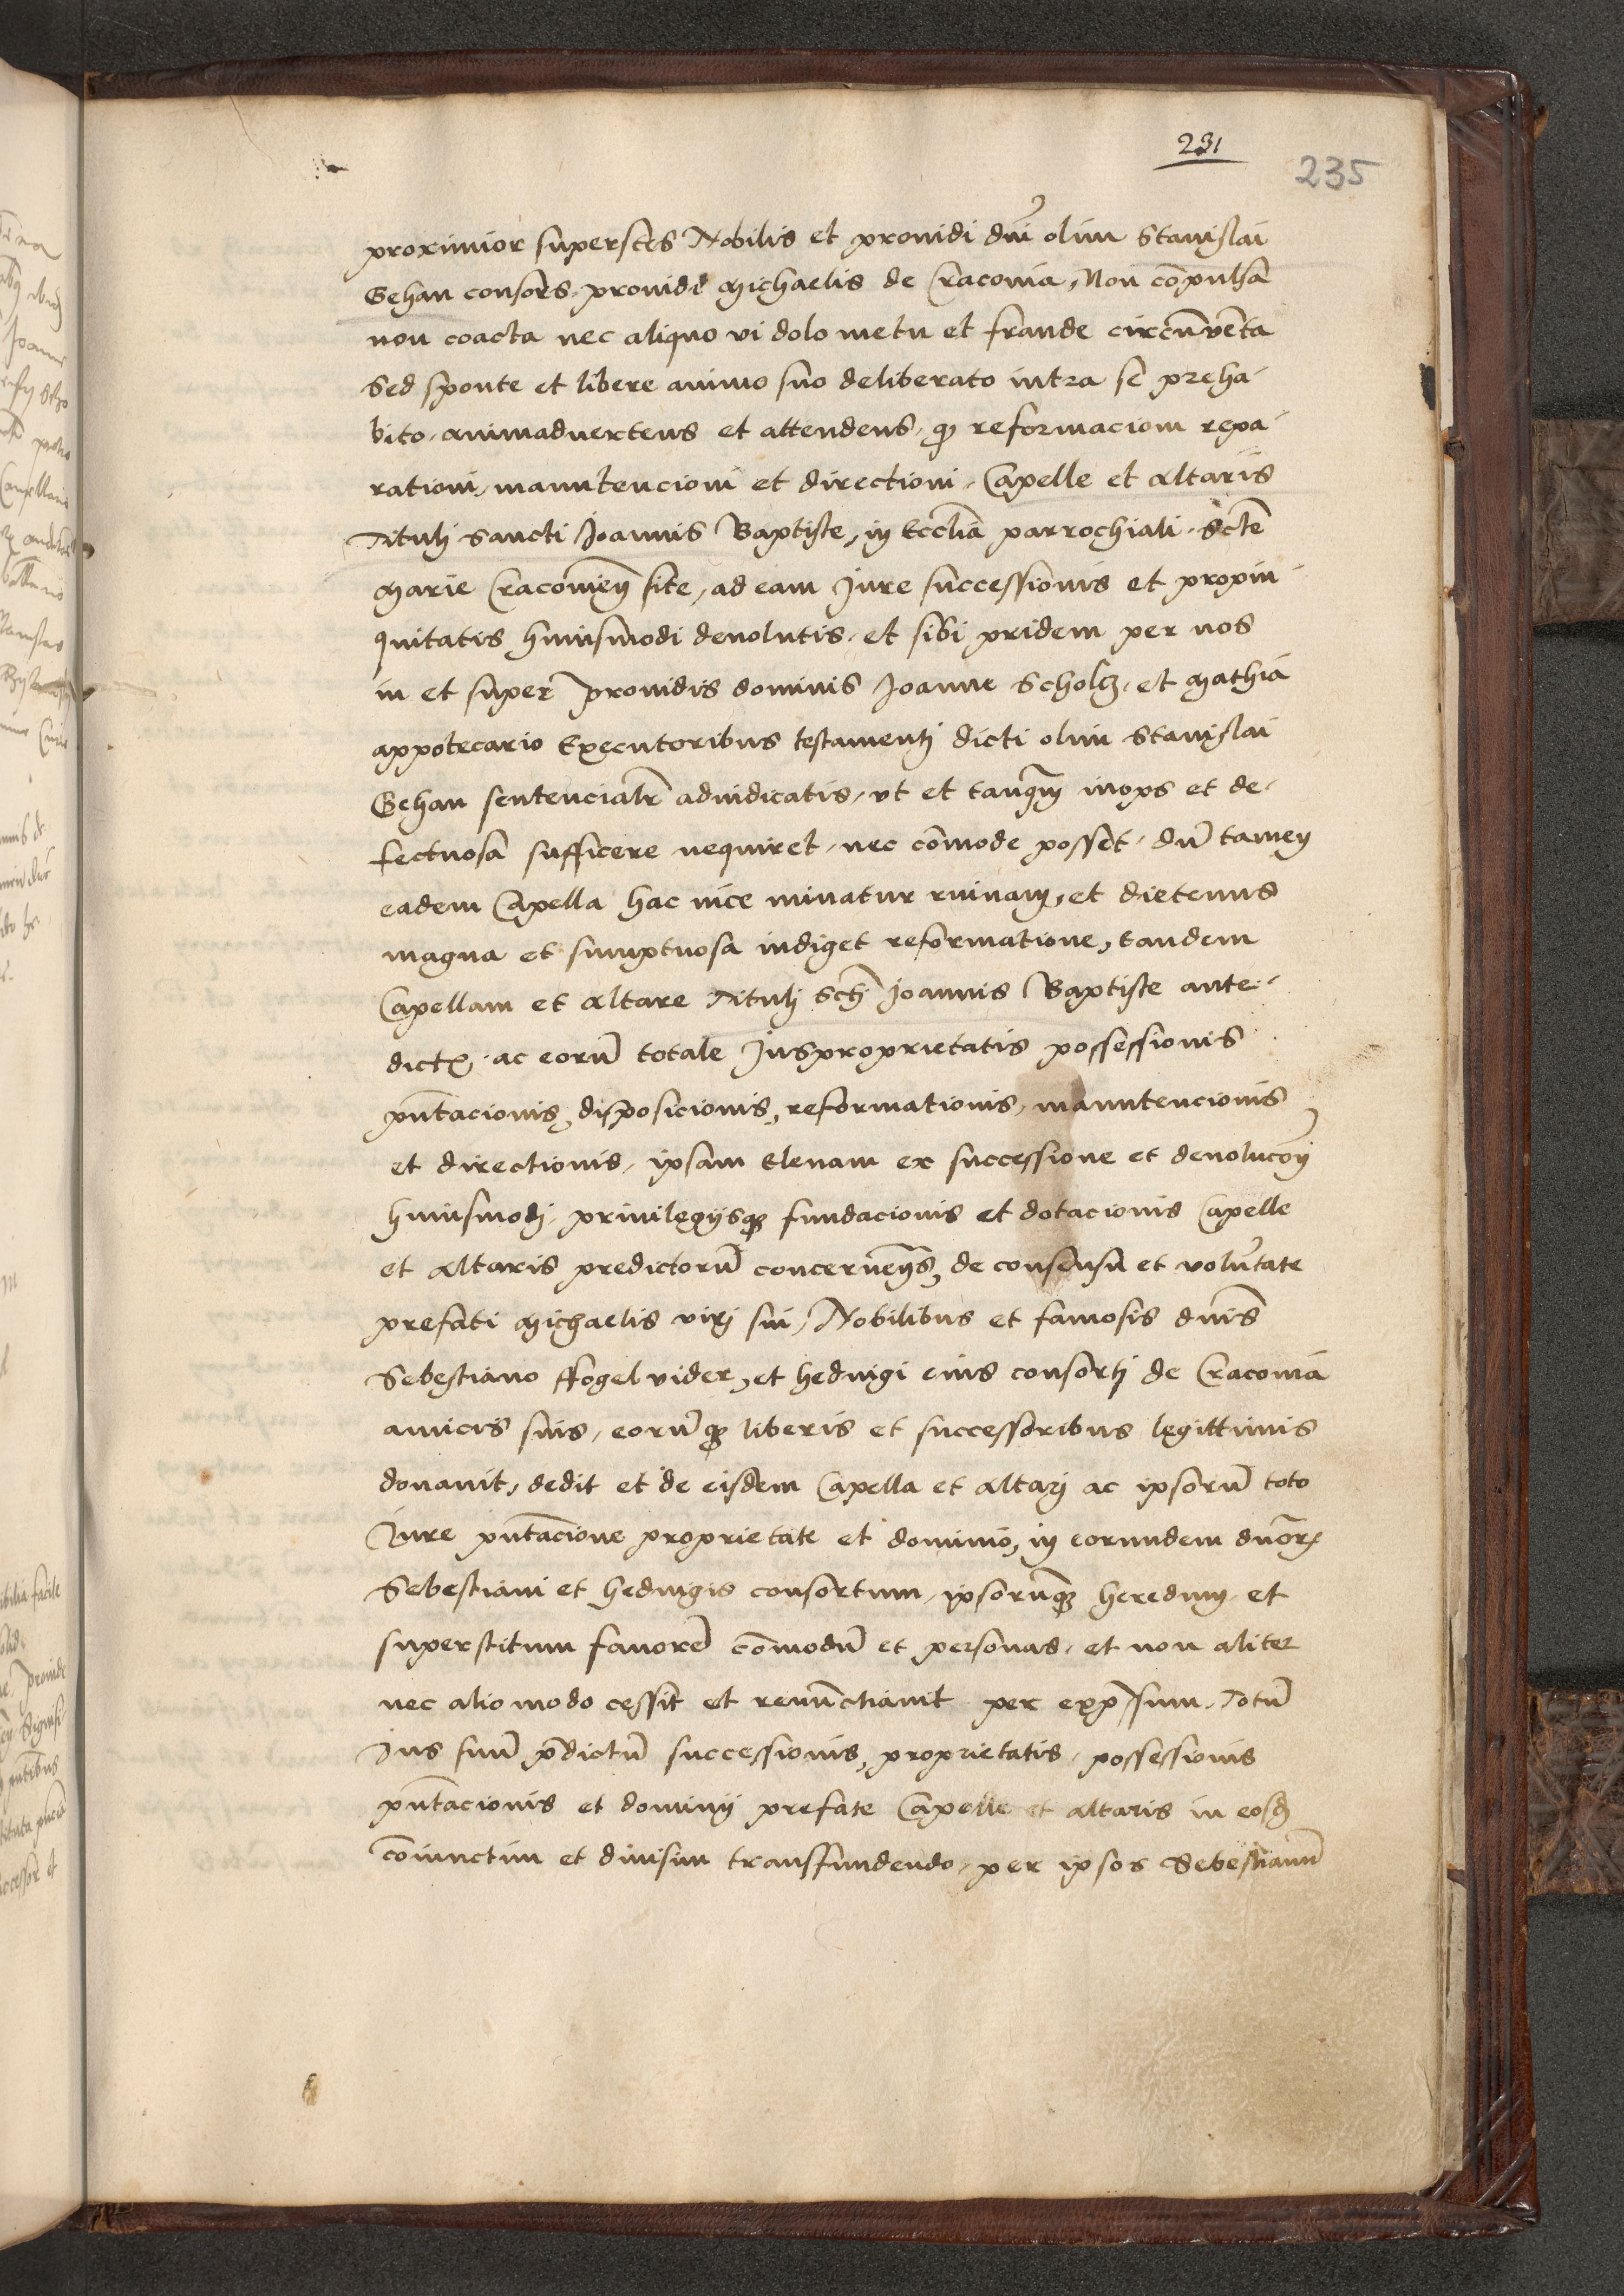 231
235
proximior superstes Nobilis et prouidi dni olim Stanislai
Gehan consors prouidi Michaelis de Cracouia, Non cōpulsa
non coacta nec aliquo vi dolo metu et fraude circūuēta
Sed sponte et libere animo suo deliberato intra se preha-
bito, animaduertens et attendens, qꝫ reformacioni repa-
rationi, manutencioni et directioni, Capelle et altaris
Tituli Sancti Joannis Baptiste, in Ecclīa parrochiali Sctē
Marie Cracouieñ site, ad eam Jure successionis et propin-
quitatis huiusmodi deuolutis, et sibi pridem per nos
in et super prouidis dominis Joanne Scholcz, et Mathia
appotecario Executoribus testamenti dicti olim Stanislai
Gehan sentencialr̄ adiudicatis, vt et tanqꝫ inops et de-
fectuosa sufficere nequiret, nec cōmode posset, dū tamen
eadem Capella hac vice minatur ruinam, et dietenus
magna et sumptuosa indiget reformatione, tandem
Capellam et altare Tituli Scti Joannis Baptiste ante-
dictꝭ ac eorū totale Jus proprietatis possessionis
pn̄tacionis, disposicionis, reformationis, manutencionis
et directionis, ipsam Elenam ex successione et deuolucōn
huiusmodi, priuilegijsqꝫ fundacionis et dotacionis Capelle
et altaris predictorū concerneñs, de consensu et volūtate
prefati Michaelis viri sui, Nobilibus et famosis dnis
Sebestiano ffogelvider, et hedwigi eius consorti de Cracouia
amicis suis, eorūqꝫ liberis et successoribus legittimis
donauit, dedit et de eisdem Capella et altari ac ipsorū toto
Jure pn̄tacione proprietate et dominio, in eorundem dnōrꝭ
Sebestiani et hedwigis consortum, ipsorūqꝫ heredum et
superstitum fauorē cōmodū et personas, et non aliter
nec alio modo cessit et renūctiauit per exp̄ssum, Totū
Jus suū p̄dictū successionis, proprietatis, possessionis
pn̄tacionis et dominij prefate Capelle et altaris in eosd
cōiunctim et diuisim transfundendo, per ipsos Sebestianū